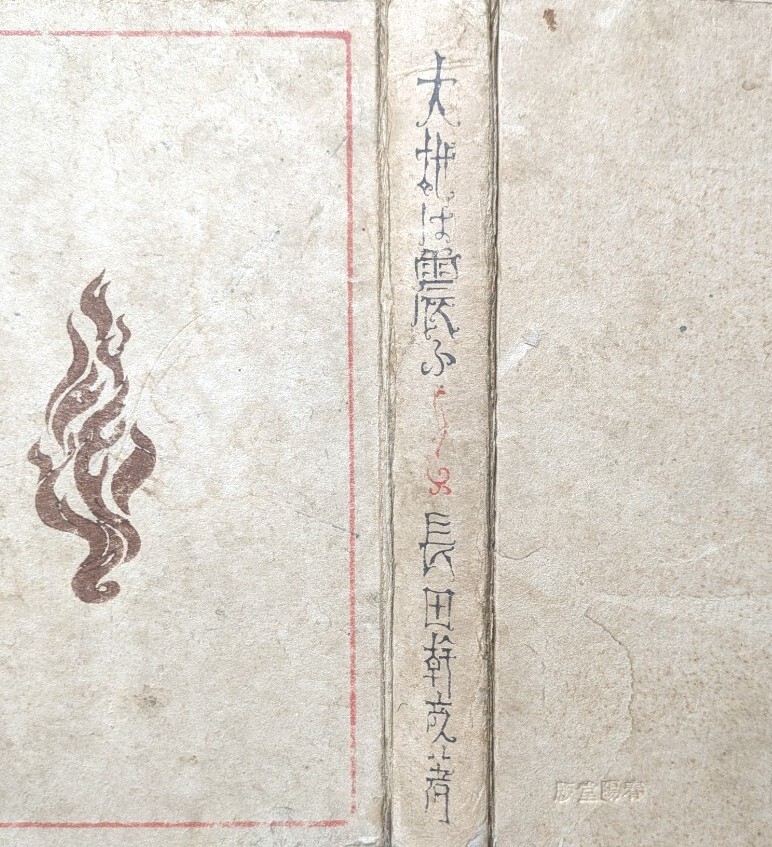 大地は震ふ 長田幹彦著
春陽堂版